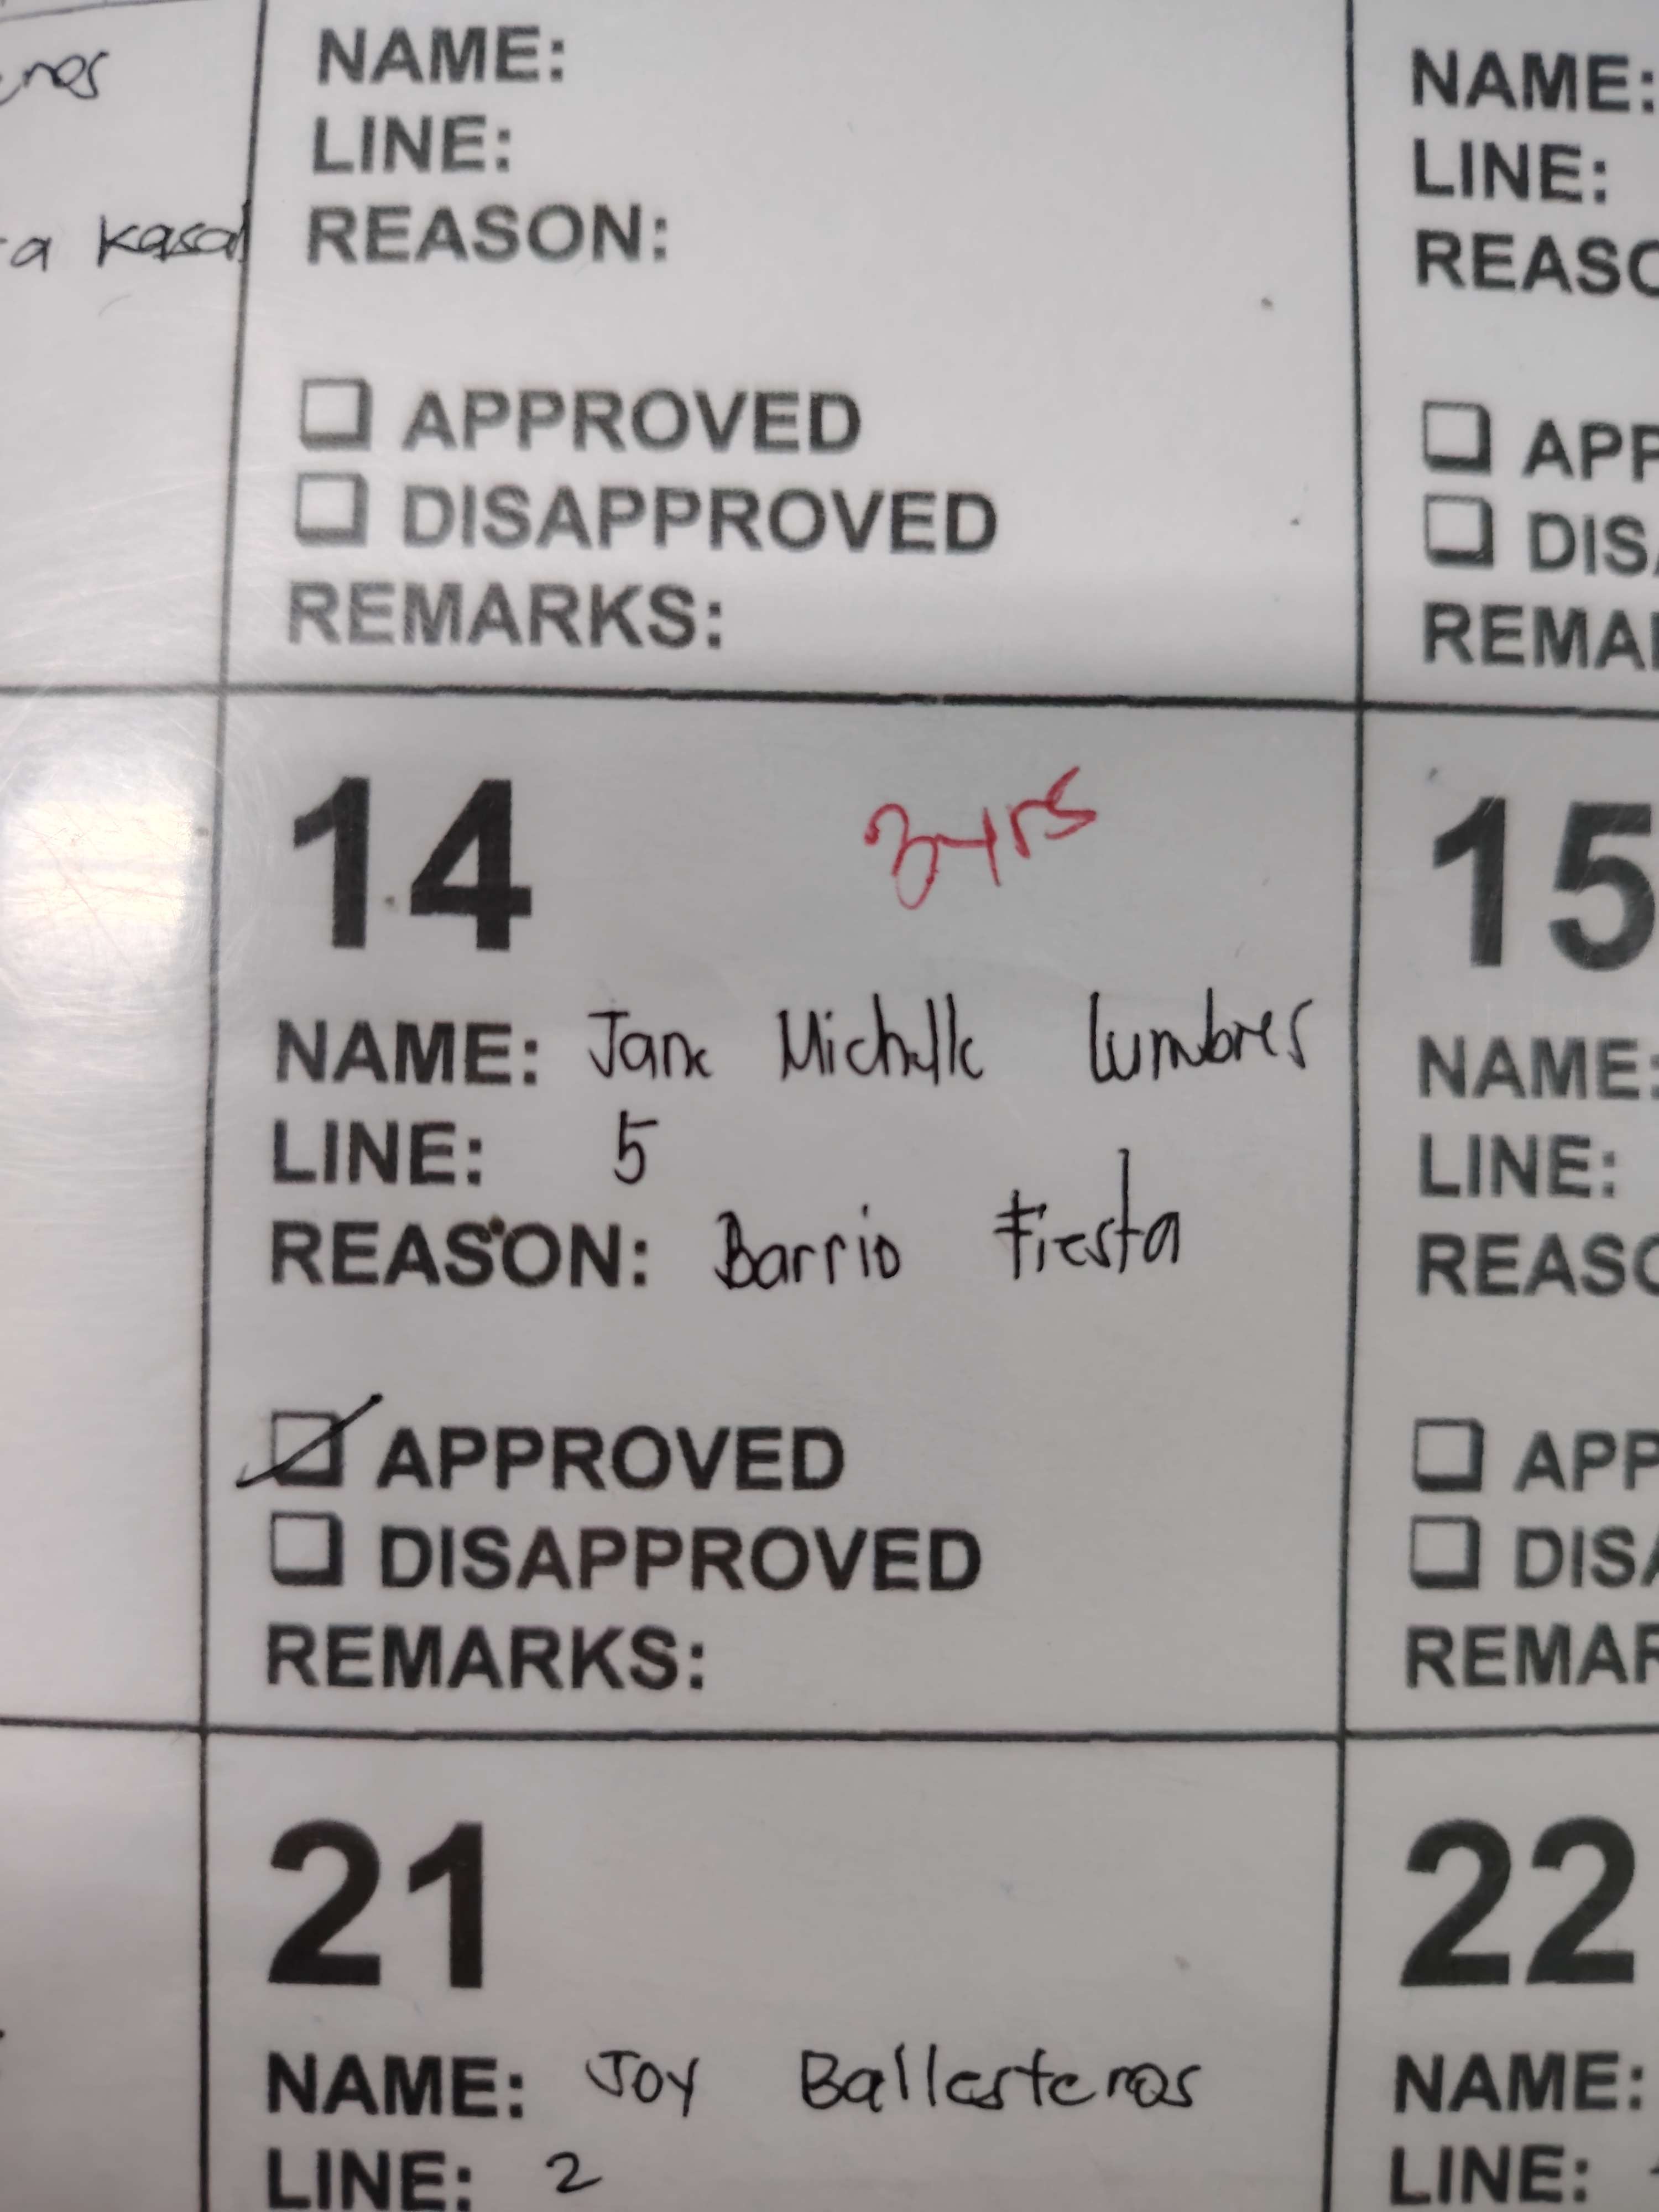 NAME:
LINE:
REASON:
a kasal
APPROVED
DISAPPROVED
REMARKS:
NAME:
LINE:
REASO
APP
DIS
REMA
14
3yrs
NAME: Jane Michelle Lumbres
LINE: 5
REASON: Barrio Fiesta
APPROVED
DISAPPROVED
REMARKS:
15
NAME:
LINE:
REASO
APP
DISA
REMAR
21
NAME: Joy Ballesteros
LINE: 2
22
NAME:
LINE: